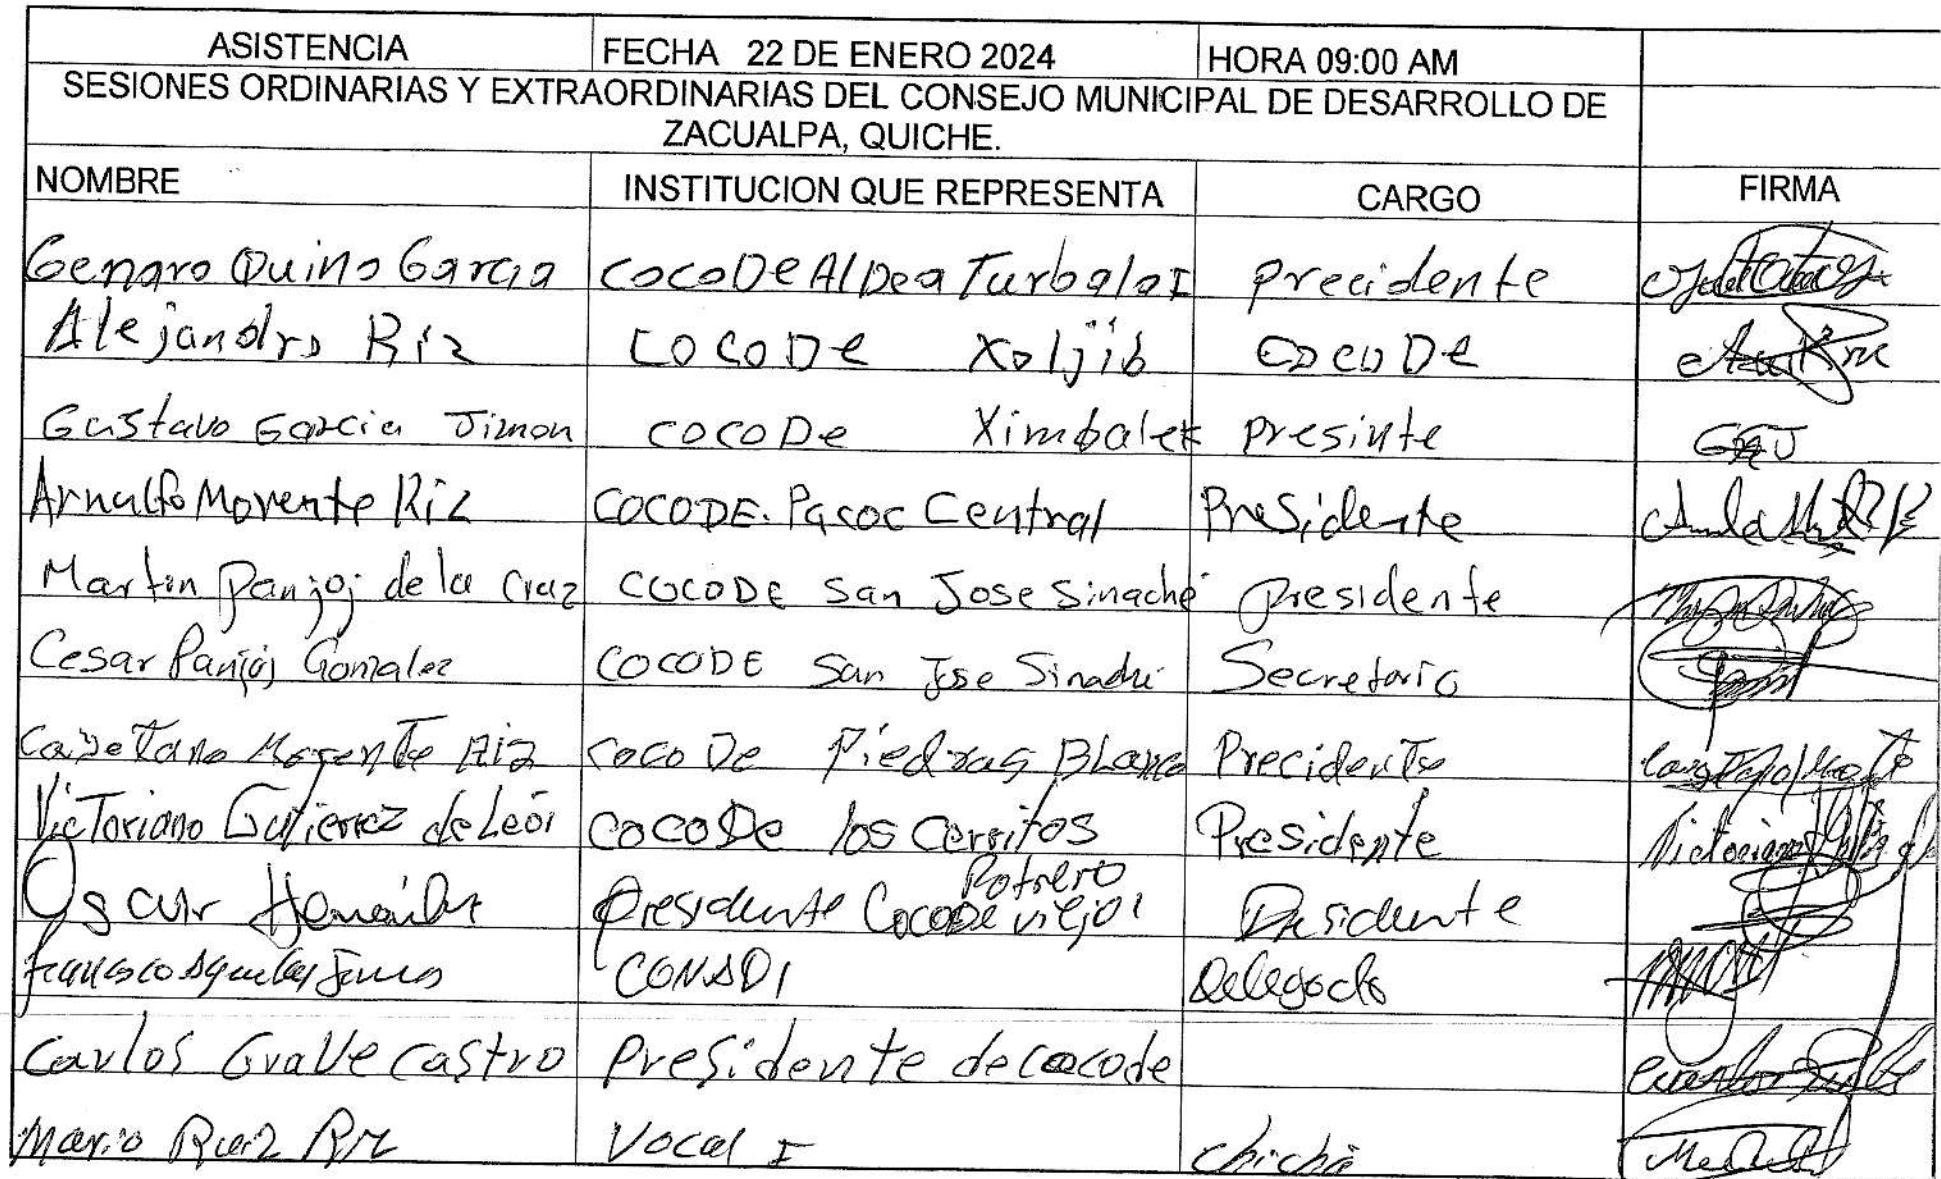 ASISTENCIA FECHA 22 DE ENERO 2024 HORA 09:00 AM
SESIONES ORDINARIAS Y EXTRAORDINARIAS DEL CONSEJO MUNICIPAL DE DESARROLLO DE
ZACUALPA, QUICHE.
NOMBRE INSTITUCION QUE REPRESENTA CARGO FIRMA
Genaro Quino Garcia COCODe AlDea Turbala I precidente
Alejandro Riz COCODe Xoljib COCODe
Gustavo Garcia Jimon COCODe Ximbalek presinte GGJ
Arnulfo Morente Riz COCODE. Pacoc Central Presidente
Martin Panjoj de la Cruz COCODE San Jose Sinaché Presidente
Cesar Panjoj Gonzalez COCODE San Jse Sinaché Secretario
Cayetano Morente Riz COCO De Piedras Blanca Precidente
Victoriano Gutierrez de León COCODe los Cerritos Presidente Victoriano
Potrero
Oscar Presidente Cocode viejo Presidente
Francisco CONADI Delegado
Carlos Grave Castro Presidente de cocode
Mario Ruiz Vocal I chiché